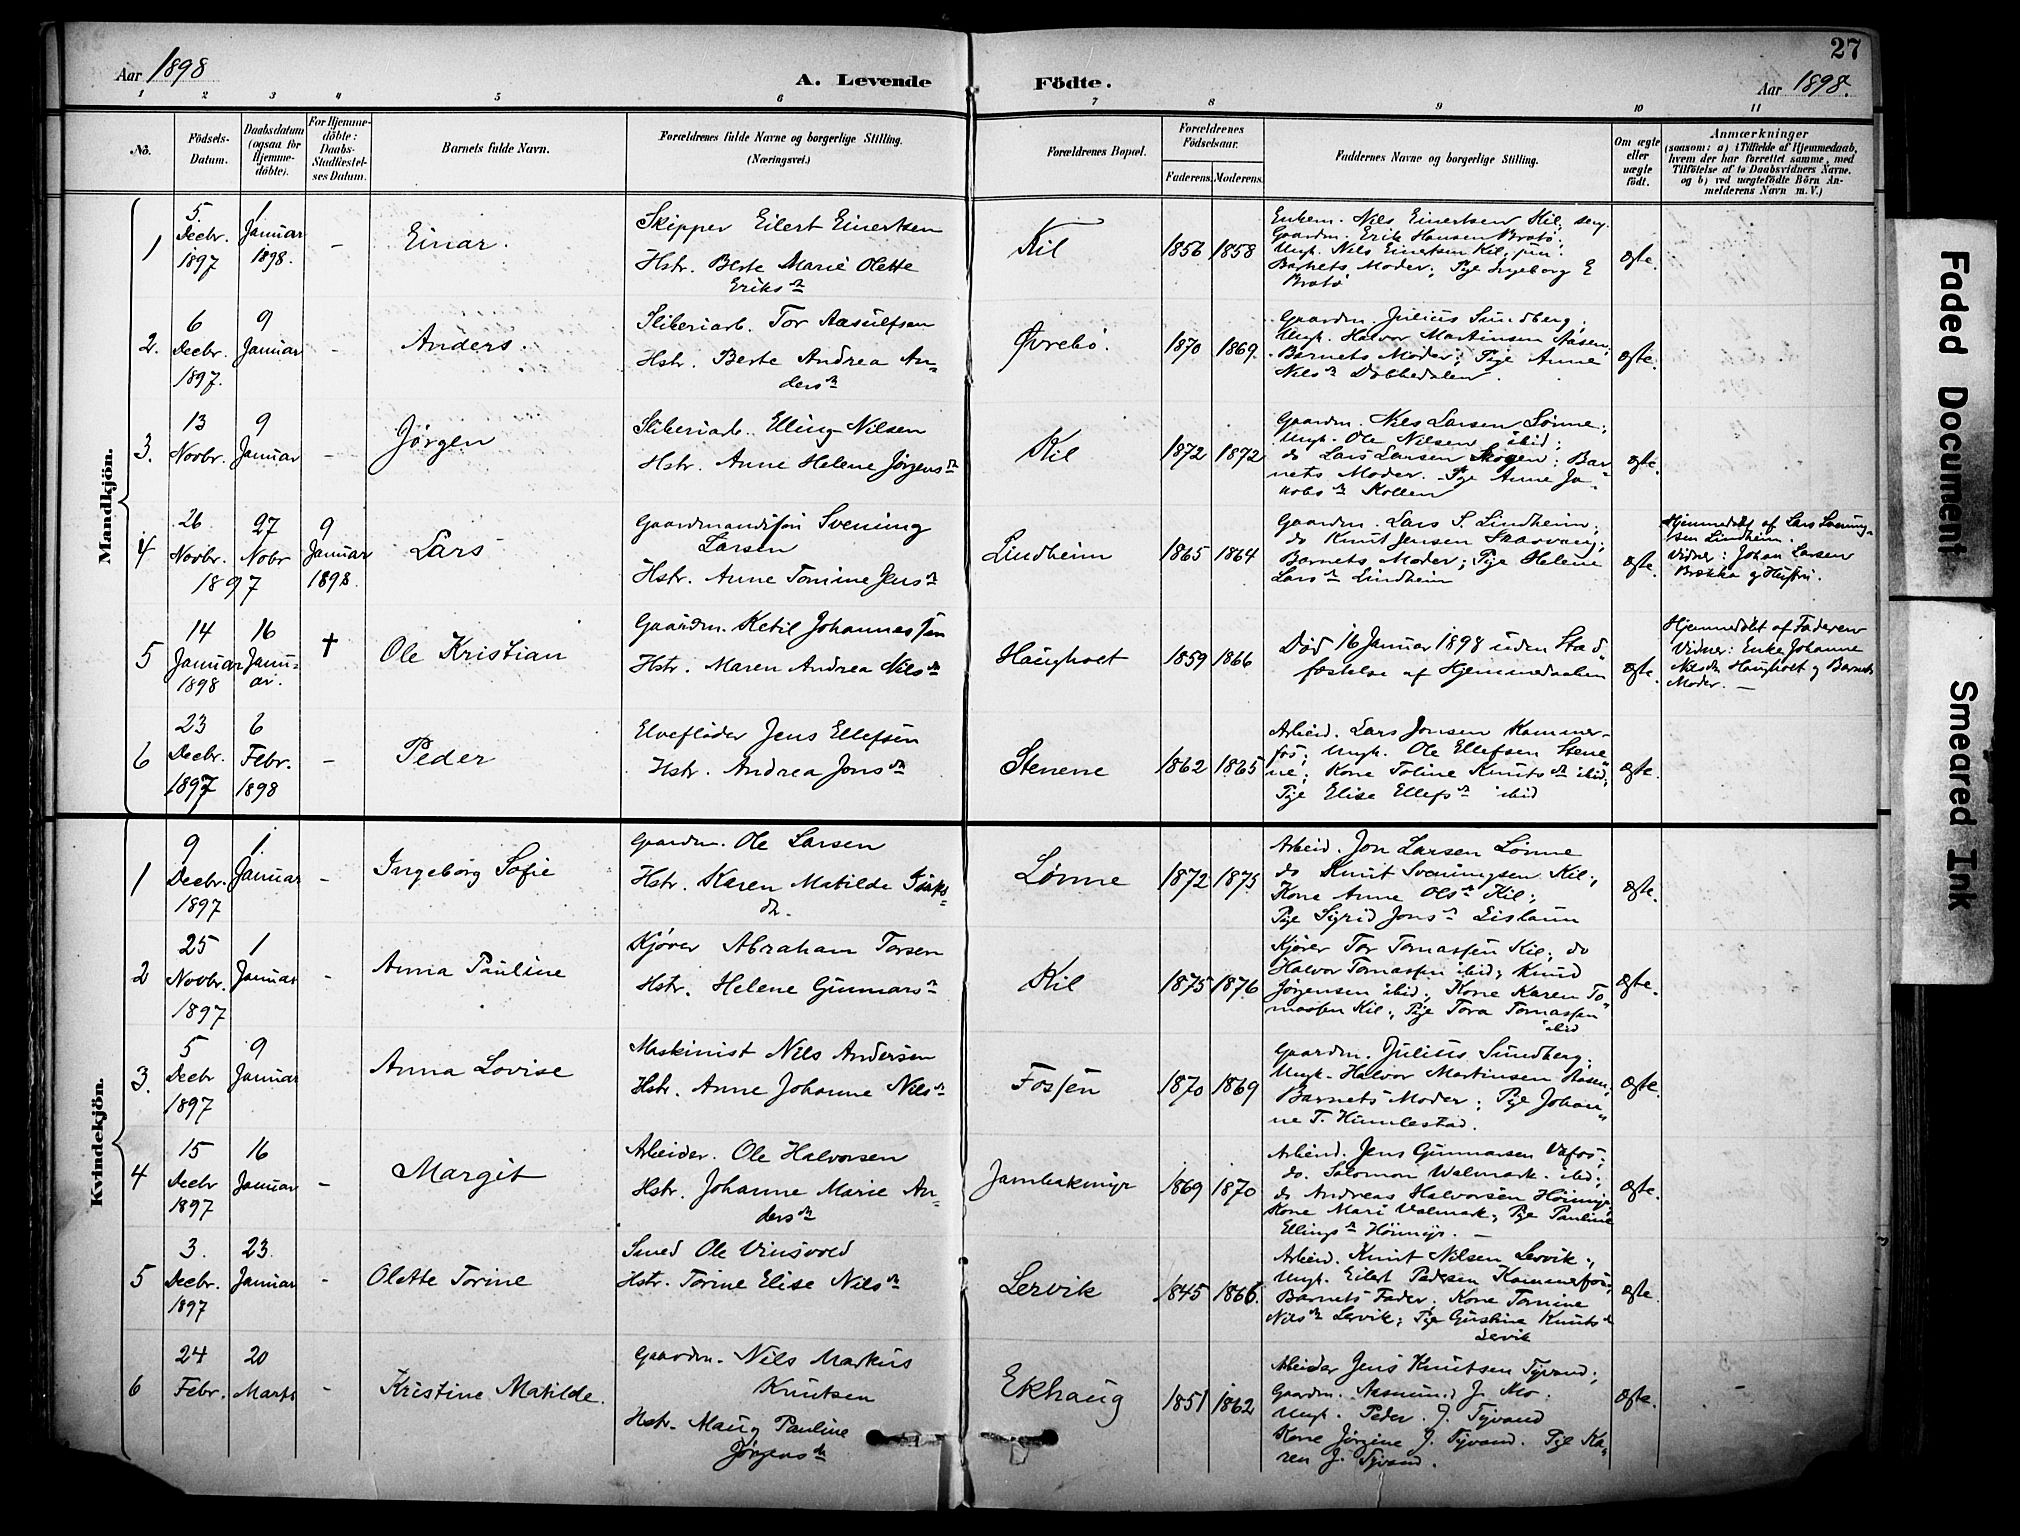 27
Aar 1898
A. Levende
Födte.
Aar 1898.
1 2 3 4 5 6 7 8 9 10 11
No.
Födsels-
Datum.
Daabsdatum
(ogsaa för
Hjemme-
döbte).
For Hjemme-
döbte:
Daabs-
Stadfæstel-
ses Datum.
Barnets fulde Navn.
Forældrenes fulde Navne og borgerlige Stilling.
(Næringsvei.)
Forældrenes Bopæl.
Forældrenes
Födselsaar.
Faderens.
Moderens.
Faddernes Navne og borgerlige Stilling.
Om ægte
eller
uægte
födt.
Anmærkninger
(saasom: a) i Tilfælde af Hjemmedaab,
hvem der har forrettet samme, med
Tilföielse af to Daabsvidners Navne.
og b) ved uægtefödte Börn An-
melderens Navn m. V.)
Mandkjön.
1
5.
Decbr.
1897
1
Januar
1898.
-
Einar.
Skipper Eilert Einertsen
Hstr. Berte Marie Olette
Eriks dr
Kil
1856
1858
Enkem. Nils Einertsen Kil, sen;
Gaardm. Erik Hansen Bratø;
Ungk. Nils Einertsen Kil, jun:
Barnets Moder; Pige Ingeborg E
Bratø
Ægte.
2.
6
Decbr.
1897.
9
Januar
-
Anders.
Sliberiarb. Tor Aasulfsen
Hstr. Berte Andrea An-
ders dr
Øvrebø.
1870
1869.
Gaardm. Julius Sundberg;
Ungk. Halvor Martinsen Aasen;
Barnets Moder; Pige Anne
Nils dr Dobbedalen.
Ægte.
3.
13
Novbr.
9
Januar
-
Jørgen
Sliberiarb. Elling Nilsen
Hstr. Anne Helene Jørgens dr
Kil
1872
1872
Gaardm. Nils Larsen Lønne;
Ungk. Ole Nilsen ibid;
do Lars Larsen Skogen; Bar-
nets Moder. Pige Anne Ja-
kobs dr Kollen
Ægte.
4
26
Novbr.
1897
27
Nobr
9
Januar
1898.
Lars
Gaardmandssøn Svening
Larsen
Hstr. Anne Tomine Jens dr
Lindheim
1865
1864
Gaardm. Lars S. Lindheim;
do Knut Jensen
Barnets Moder; Pige Helene
Lars dr Lindheim
Ægte.
Hjemmedøbt af Lars Svening-
sen Lindheim.
Vidner: Johan Larsen
Brække og Hustru.
5
14
Januar
1898
16
Janu-
ar.
†
Ole Kristian
Gaardm. Ketil Johannessen
Hstr. Maren Andrea Nils dr
Haugholt
1859
1866
Død 16 Januar 1898 uden Stad-
fæstelse af Hjemmedaaben
Ægte.
Hjemmedøbt af Faderen
Vidner: Enke Johanne
Nils dr Haugholt og Barnets
Moder. —
6
23
Decbr.
1897
6
Febr.
1898
-
Peder
Elvefløder Jens Ellefsen
Hstr. Andrea Jons dr
Stenene
1862
1865
Arbeid. Lars Jonsen Kammer-
fos; Ungk. Ole Ellefsen Stene-
ne; Kone Toline Knuts dr ibid;
Pige Elise Ellefs dr ibid
Ægte.
Kvindekjön.
1
9
Decbr.
1897
1
Januar
-
Ingeborg Sofie
Gaardm. Ole Larsen
Hstr. Karen Matilde Isaks-
dr.
Lønne
1872
1875
Arbeid. Jon Larsen Lønne
do Knut Sveningsen Kil;
Kone Anne Ols dr Kil;
Pige Sigrid Jons dr
Ægte.
2
25
Novbr.
1897
1
Januar
-
Anna Pauline
Kjører Abraham Torsen
Hstr. Helene Gunnars dr
Kil
1875
1876
Kjører Tor Tomassen Kil; do
Halvor Tomassen ibid; Knud
Jørgensen ibid; Kone Karen To-
massen Kil; Pige Tora Tomassen
ibid
Ægte.
3.
5
Decbr
1897
9
Januar
Anna Lovise
Maskinist Nils Andersen
Hstr. Anne Johanne Nils dr
Fossen
1870
1869
Gaardm. Julius Sundberg;
Ungk. Halvor Martinsen Aasen;
Barnets Moder; Pige Johan-
ne T. Humlestad.
Ægte.
4
15
Decbr
1897
16
Januar
-
Margit
Arbeider. Ole Halvorsen
Hstr. Johanne Marie An-
ders dr
Jambakmyr
1869
1870
Arbeid. Jens Gunnarsen Vafos;
do. Salomon Walmark. ibid;
do Andreas Halvorsen Hönmyr,
Kone Mari Valmark; Pige Pauline
Ellings dr Hönmyr. —
Ægte.
5
3.
Decbr.
1897
23.
Januar
-
Olette Torine
Smed Ole Vinsvold
Hstr. Torine Elise Nils dr
Lervik
1845
1866.
Arbeid. Knut Nilsen Lervik;
Ungk. Eilert Pedersen Kammerfos;
Barnets Fader; Kone Tomine
Nils dr Lervik; Pige Gustine Knuts dr
Lervik
Ægte.
6
24
Febr.
20
Marts
-
Kristine Matilde.
Gaardm. Nils Markus
Knutsen
Hstr. Maug Pauline
Jørgens dr
Ekhaug
1851
1862
Arbeider Jens Knutsen Tyvand;
Gaardm. Aasmund J. Mo.
Ungk. Peder. J. Tyvand
Kone Jørgine J. Tyvand. Pige Ka-
ren J. Tyvand.
Ægte.
-
Faded Document
Smeared Ink